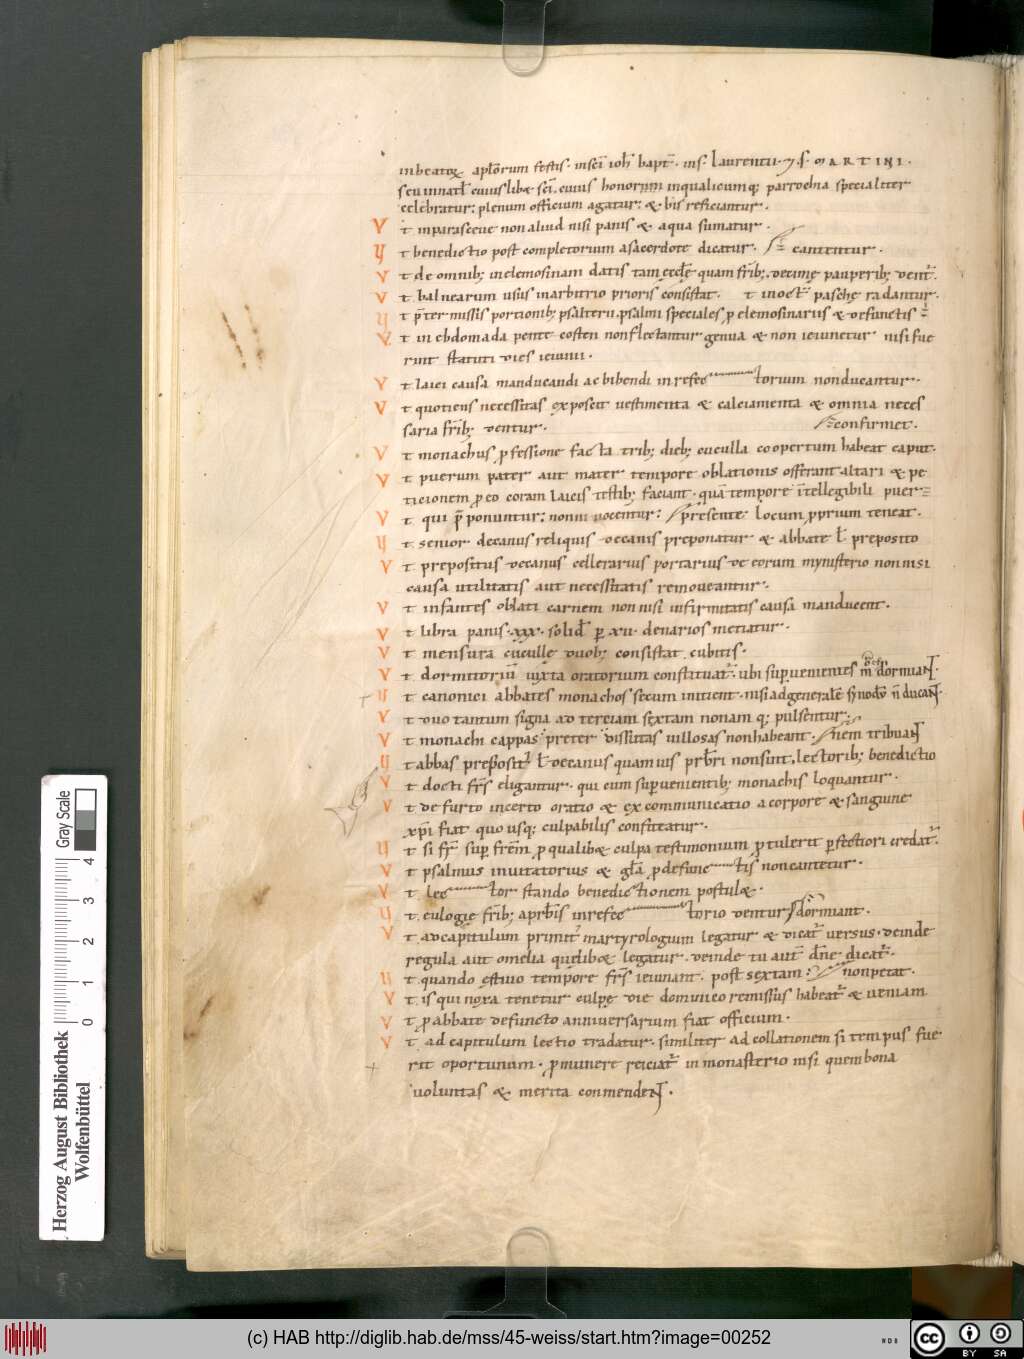 in beatoꝝ apłorum festis. in scī ioħ bapt̄. in s. laurentii. ⁊ s. MARTINI.
seu in natł cuiuslibꝫ scī. cuius honorem in qualicumqꝫ parrochia specialiter
celebratur; plenum officium agatur; & bis reficiantur.
V t in parasceue non aliud nisi panis & aqua sumatur.
V t benedictio post completorium a sacerdote dicatur. cantentur.
V t de omnibꝫ in elemosinam datis tam eccłę quam fr̄ibꝫ. decimę pauperibꝫ dentˀ.
V t balnearum usus in arbitrio prioris consistat. t in oct̄ paschę radantur.
V t p̄ter missis portionibꝫ psalterii. psalmi speciales ꝓ elemosinariis & defunctis
V t in ebdomada pentecosten non flectantur genua & non ieiunetur nisi fue
rint statuti dies ieiunii.
V t laici causa manducandi ac bibendi in refectorium non ducantur.
V t quotiens necessitas exposcit uestimenta & calciamenta & omnia neces
saria fr̄ibꝫ dentur. confirmet.
V t monachus ꝓfessione facta tribꝫ diebꝫ cuculla coopertum habeat caput.
V t puerum pater aut mater tempore oblationis offerant altari & pe
ticionem ꝓ eo coram laicis testibꝫ faciant. quā tempore ītellegibili puer
V t qui p̄ponuntur; nonni uocentur; presente. locum ꝓprium teneat.
V t senior decanus reliquis decanis preponatur & abbate ł preposito
V t prepositus decanus cellerarius portarius de eorum mynisterio non nisi
causa utilitatis aut necessitatis remoueantur.
V t infantes oblati carnem non nisi infirmitatis causa manducent.
V t libra panis .xxx. solid̄ ꝑ xii. denarios metiatur.
V t mensura cucullę duobꝫ consistat cubitis.
V t dormitoriū iuxta oratorium constituatˀ. ubi superuenientes mo dormiant.
V t canonici abbates monachos secum n̄ ducant. nisi ad generalē synodū n̄ ducant.
V t duo tantum signa ad terciam sextam nonam qꝫ pulsentur;
V t monachi cappas preter dissutas uillosas non habeant. nem tribuant
V t abbas preposit ł decanus quamuis prb̄ri non sint, lectoribꝫ benedictio
V t docti fr̄s eligantur. qui cum superuenientibꝫ monachis loquantur.
V t de furto incerto oratio & excommunicatio a corpore & sanguine
xp̄i fiat quo usqꝫ culpabilis confiteatur.
V t si fr̄ suꝑ fr̄em ꝓ qualibꝫ culpa testimonium ꝓtulerit ꝑfectiori credatˀ.
V t psalmus inuitatorius & gła ꝓ defunctis non cantetur.
V t lector stando benedictionem postulꝫ.
V t eulogię fr̄ibꝫ a prb̄is in refectorio dentur dormiant.
V t ad capitulum primitˀ martyrologium legatur & dicatˀ uersus. deinde
regula aut omelia quęlibꝫ legatur. deinde tu aut̄ dn̄e dicatˀ.
V t quando ęstiuo tempore fr̄s ieiunant. post sextam; non petat.
V t is qui noxa tenetur culpę die dominico remissus habeatˀ & ueniam
V t ꝓ abbate defuncto anniuersarium fiat officium.
V t ad capitulum lectio tradatur. similiter ad collationem si tempus fue
rit oportunum. ꝓ munere reiciatˀ in monasterio nisi quem bona
uoluntas & merita commendent.
Herzog August Bibliothek
Wolfenbüttel
Gray Scale
0 1 2 3 4
(c) HAB http://diglib.hab.de/mss/45-weiss/start.htm?image=00252
cc BY SA